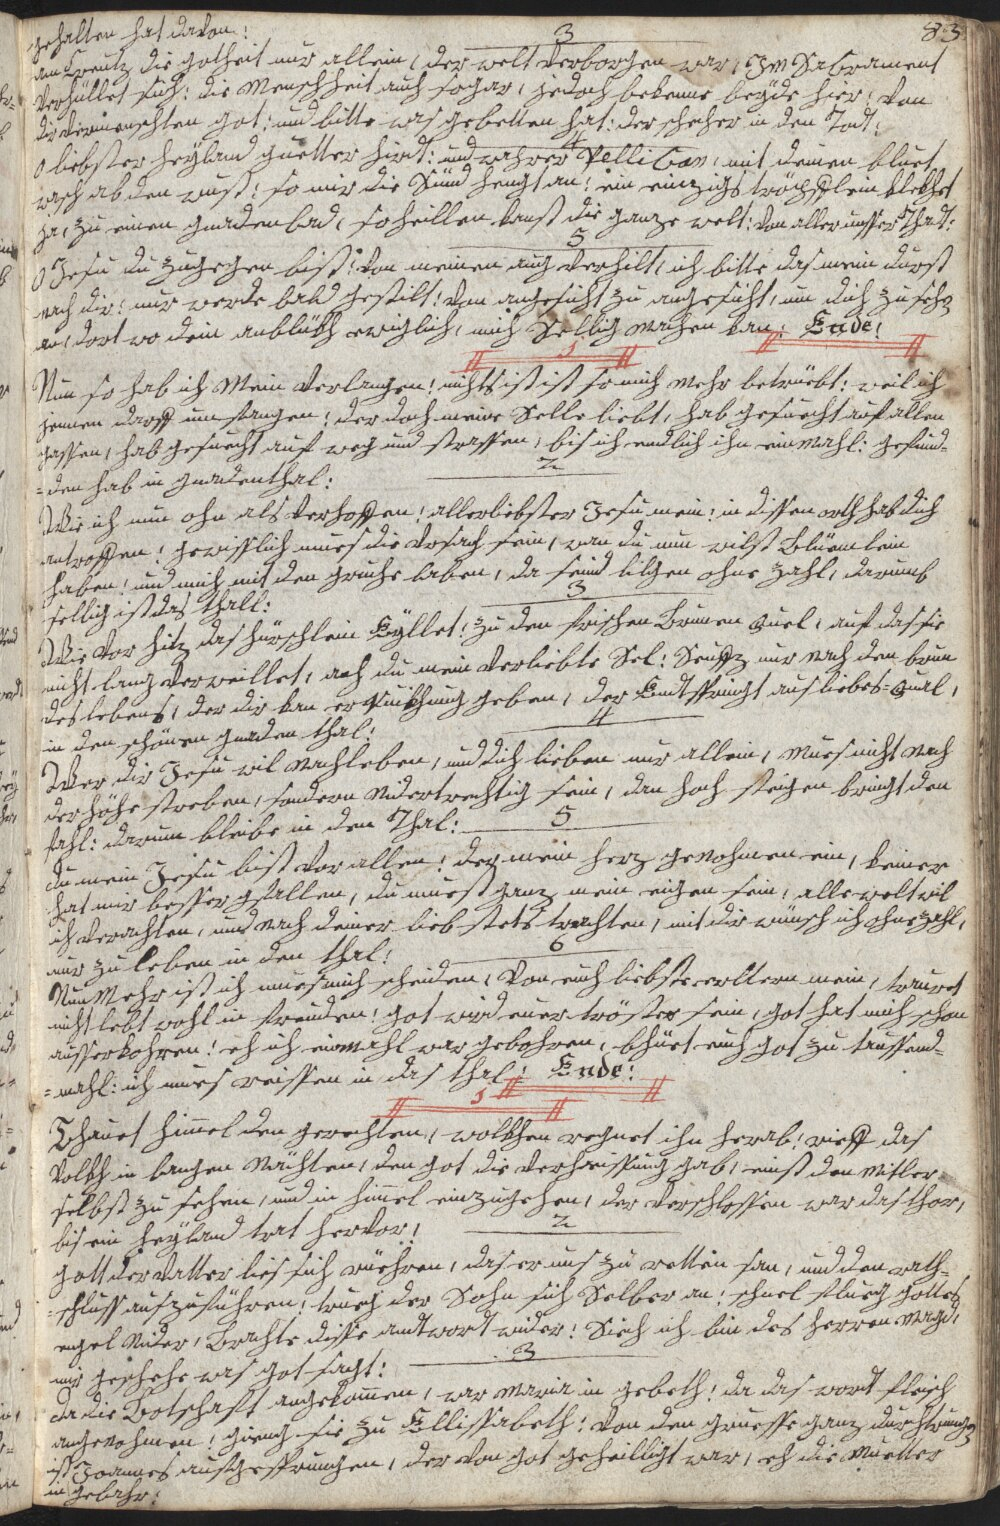 83
gehalten hat davon!
3
am Creutz die gotheit nur allein, der welt verborgen war, Im Sacrament
verhüllet sich: die Menschheit auch sogar, jedoch bekenne beyde hier: Von
dir vermenschten got: und bitte was gebetten hat: der schecher in den Todt:
4
O liebster Heyland guetter hirdt: und wahrer Pellican, mit deinen bluet
wasch ab den wust: so mir die Sünd hengt an: ein einzigs tröpfflein klekhet
ja, zu einen gnadenbad, so heillen kanst die ganze welt: von aller
5
O Jesu du zugegen bist: Von meinen aug verhilt, ich bitte das mein durst
nach dir: nur werde bald gestilt: Von angesicht zu angesicht, um dich zu sehen
an, dort wo dein anblükh ewiglich, mich Sellig machen kan: Ende:
1
Nun so hab ich Mein verlangen! nichts ist ist so mich mehr betrüebt: weil ich
jennen darff umfangen! der doch meine Selle liebt, hab gesuecht auf allen
gassen, hab gesuecht auf weg und strassen, bis ich endlich ihn einmahl: gefund=
=den hab in gnadenthal:
2
Wie ich nun ohn als verhoffen! allerliebster Jesu mein: in dissen orth hab dich
antroffen! gewisslich mues die Ursach sein, wan du nun wilst Blüemlein
haben! und mich mit den gruche laben, da seind lilgen ohne zahl, darumb
sellig ist das thall:
3
Wie vor hitz das hürschlein Eyllet! zu den frischen Brunen quel, auf das sie
nicht lang verweillet, ach du mein verliebte Sel: Seuffz nur nach den brun
des lebens, der dir kan erkuikhung geben, der Endtspringt aus liebes=qual,
in den schönen gnaden thal:
4
Wer dir Jesu wil nachleben, und dich lieben nur allein, mues nicht nach
der höhe streben, sondern nidertrechtig sein, dan hoch steigen bringt den
fahl: darum bleibe in den Thal:
5
du mein Jesu bist vor allen! der mein herz genohmen ein, keiner
hat mir besser gfallen, du muest ganz mein eigen sein, alle welt wil
ich verachten, und nach deiner lieb stets trachten, mit dir wünsch ich ohne zahl,
nur zu leben in den thal:
6
Nun Mehr ist ich mues mich scheiden, von euch liebste erltern mein, trauret
nicht lebt wohl in freuden! got wird euer tröster sein, got hat mich schon
ausserkohren! eh ich einmahl war gebohren, bhüet euch got zu taussend=
=mahl: ich mues reissen in das thal: Ende:
1
Thauet himel den gerechten, wolkhen regnet ihn herab! rieff das
Volkh in bangen Nächten, den got die verheissung gab, einst den mitler
selbst zu sehen, und in himel einzugehen, der verschlossen war das thor,
bis ein heyland trat hervor!
2
gott der vatter lies sich rüehren, das er uns zu retten san, und den rath=
=schluss auszuführen! trueg der Sohn sich Selber an! schnel flueg gottes
engel nider, Brachte disse antwort wider! Sieh ich bin des herren magd,
mir geschehe was got sagt:
3
da die Botschaft angekomen, war Maria in gebeth! da das wordt fleisch
angenohmen! gieng sie zu Ellissabeth! Von den gruesse ganz durchtrungen
ist Joannes aufgesprungen, der von got geheilligt war, eh die Muetter
in gebahr: